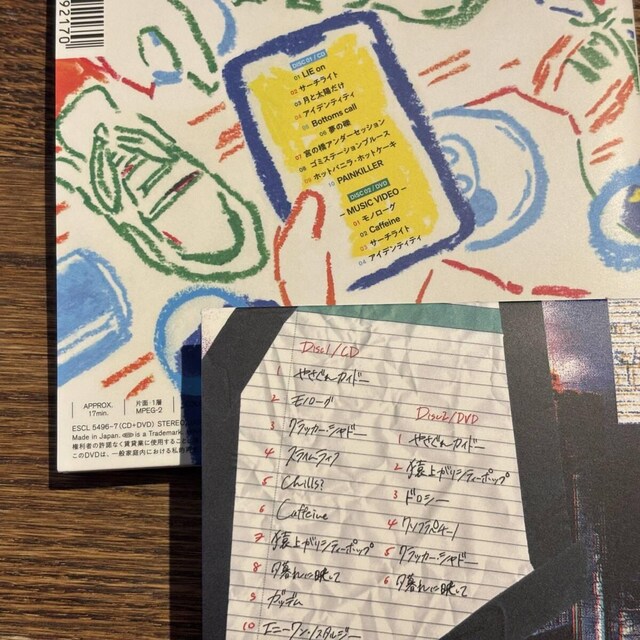 92170
DISC 01 / CD
01 LIE on
02 サーチライト
03 月と太陽だけ
04 アイデンティティ
05 Bottoms call
06 夢の礫
07 宮の橋アンダーセッション
08 ゴミステーションブルース
09 ホットバニラ・ホットケーキ
10 PAINKILLER
DISC 02 / DVD
– MUSIC VIDEO –
01 モノローグ
02 Caffeine
03 サーチライト
04 アイデンティティ
APPROX. 17min.
片面・1層 MPEG-2
ESCL 5496-7 (CD+DVD) STEREO
Made in Japan. is a Tradema
権利者の許諾なく賃貸業に使用すること
このDVDは、一般家庭内における私的
Disc1/CD
1 やさぐれカイドー
2 モノローグ
3 クラッカーシャドー
4 スライムライフ
5 Chills?
6 Caffeine
7 猿上がりシティーポップ
8 夕暮れに映して
9 ガッデム
10 エニーワン・ノスタルジー
Disc2/DVD
1 やさぐれカイドー
2 猿上がりシティーポップ
3 ドロシー
4
5 クラッカーシャドー
6 夕暮れに映して